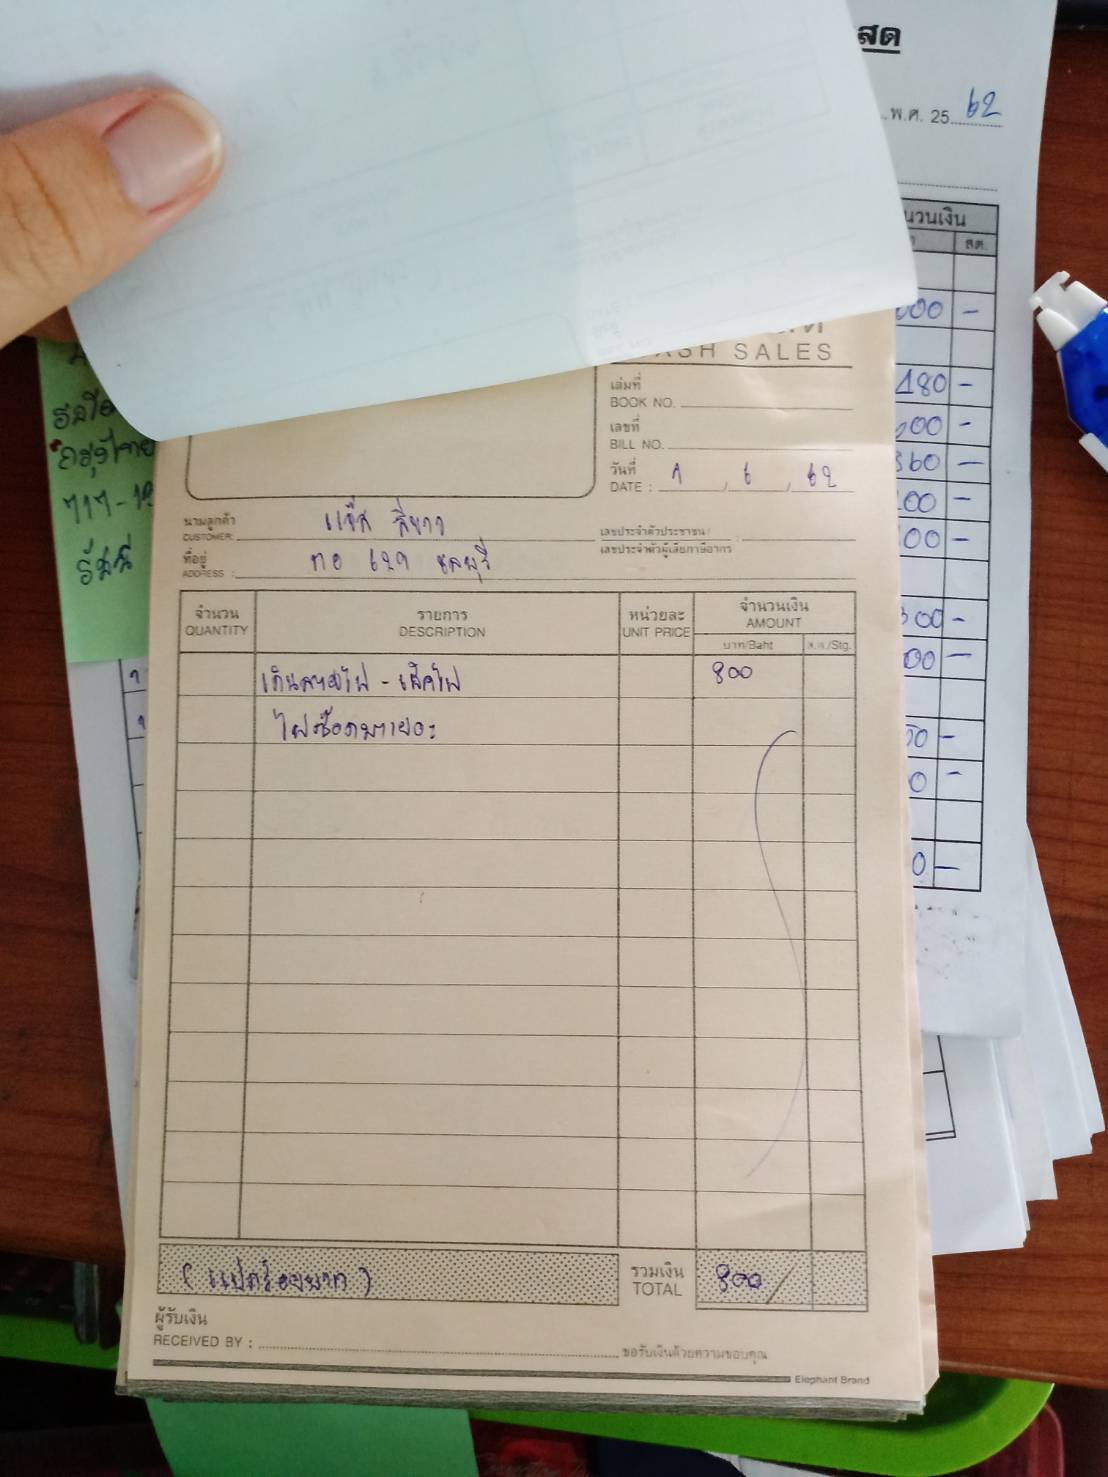 สด
พ.ศ. 25 62
นวนเงิน
สต.
000 -
480 -
600 -
360 -
00 -
00 -
300 -
00 -
50 -
0 -
0 -
กรุงไทย
CASH SALES
เล่มที่
BOOK NO.
เลขที่
BILL NO.
วันที่
DATE : 1 , 6 , 62
นามลูกค้า
CUSTOMER
ที่อยู่
ADDRESS : ทอ 629 ชลบุรี
เลขประจำตัวประชาชน/ :
เลขประจำตัวผู้เสียภาษีอากร
จำนวน รายการ หน่วยละ จำนวนเงิน
QUANTITY DESCRIPTION UNIT PRICE AMOUNT
บาท/Baht ส.ต./Stg.
เดินสายไฟ - เช็คไฟ 800
(แปดร้อยบาท)
รวมเงิน 800/
TOTAL
ผู้รับเงิน
RECEIVED BY : ขอรับเงินด้วยความขอบคุณ
Elephant Brand